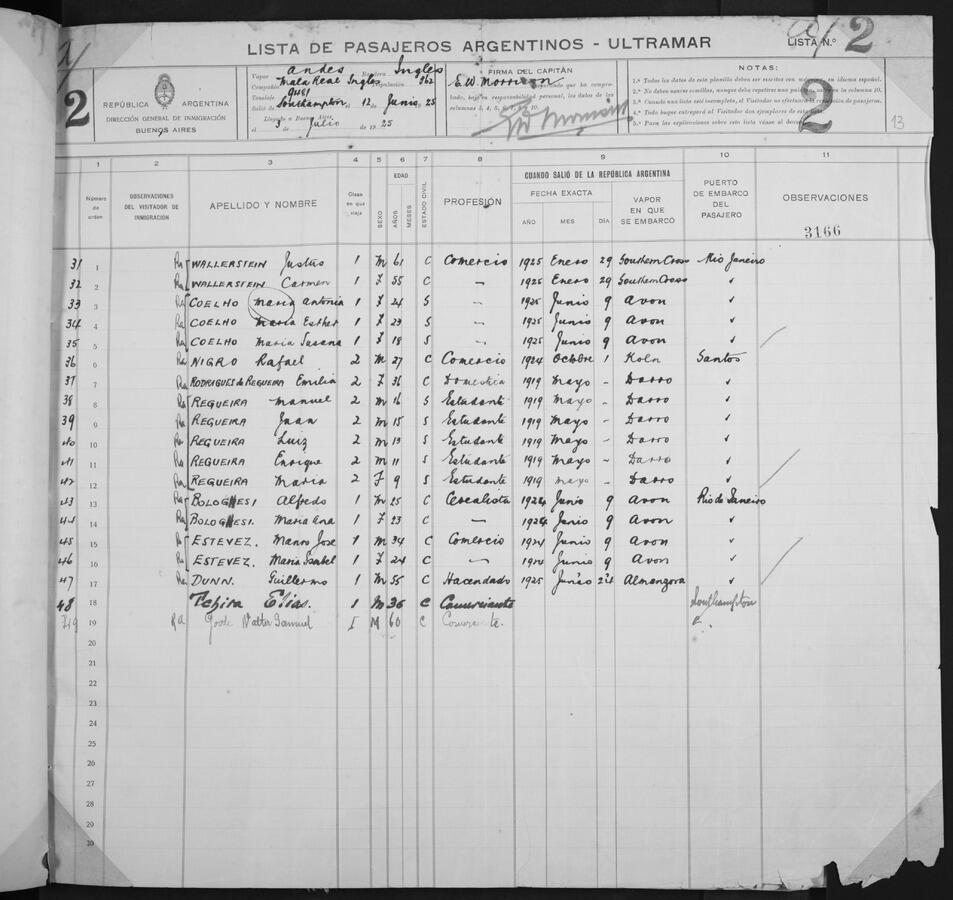 LISTA DE PASAJEROS ARGENTINOS - ULTRAMAR
LISTA N.º 2
2
REPÚBLICA ARGENTINA
DIRECCIÓN GENERAL DE INMIGRACIÓN
BUENOS AIRES
Vapor Andes Bandera Ingles
Compañía Mala Real Inglesa Tripulación 362
Tonelaje
Salió de Southampton, 12 Junio, 25
Llegado a Buenos Aires,
el 3 de Julio de 1925
FIRMA DEL CAPITÁN
E. W. Morrison
columnas 3, 4, 5, 6, 7, 8, 9, 10.
NOTAS:
1.ª Todos los datos de esta planilla deben ser escritos con en idioma español.
2.ª No deben usarse comillas, aunque deba repetirse una la columna 10.
3.ª Cuando una lista esté incompleta, el Visitador no efectuará la de pasajeros.
4.ª Todo buque entregará al Visitador dos ejemplares de esta lista.
5.ª Para las explicaciones sobre esta lista véase al dorso.
2
13
1 2 3 4 5 6 7 8 9 10 11
Número de orden
OBSERVACIONES DEL VISITADOR DE INMIGRACIÓN
APELLIDO Y NOMBRE
Clase en que viaja
SEXO
EDAD
AÑOS
MESES
ESTADO CIVIL
PROFESIÓN
CUANDO SALIÓ DE LA REPÚBLICA ARGENTINA
FECHA EXACTA
AÑO MES DÍA
VAPOR EN QUE SE EMBARCÓ
PUERTO DE EMBARCO DEL PASAJERO
OBSERVACIONES
3166
31 1 Ra WALLERSTEIN Justus 1 M 61 C Comercio 1925 Enero 29 Southern Cross Rio Janeiro
32 2 Ra WALLERSTEIN Carmen 1 F 55 C - 1925 Enero 29 Southern Cross ✓
33 3 Ra COELHO Maria Antonia 1 F 24 S - 1925 Junio 9 Avon ✓
34 4 Ra COELHO Maria Esther 1 F 23 S - 1925 Junio 9 Avon ✓
35 5 Ra COELHO Maria Susana 1 F 18 S - 1925 Junio 9 Avon ✓
36 6 Ra NIGRO Rafael 2 M 27 C Comercio 1924 Octubre 1 Koln Santos
37 7 Ra RODRIGUES de REGUEIRA Emilia 2 F 36 C Domestica 1919 Mayo - Darro ✓
38 8 Ra REGUEIRA Manuel 2 M 16 S Estudante 1919 Mayo - Darro ✓
39 9 Ra REGUEIRA Juan 2 M 15 S Estudante 1919 Mayo - Darro ✓
40 10 Ra REGUEIRA Luiz 2 M 13 S Estudante 1919 Mayo - Darro ✓
41 11 Ra REGUEIRA Enrique 2 M 11 S Estudante 1919 Mayo - Darro ✓
42 12 Ra REGUEIRA Maria 2 F 9 S Estudante 1919 Mayo - Darro ✓
43 13 Ra BOLOGNESI Alfredo 1 M 25 C Cerealista 1924 Junio 9 Avon Rio de Janeiro
44 14 Ra BOLOGNESI. Maria Ana 1 F 23 C - 1924 Junio 9 Avon ✓
45 15 Ra ESTEVEZ. Jose 1 M 34 C Comercio 1924 Junio 9 Avon ✓
46 16 Ra ESTEVEZ. Maria Isabel 1 F 24 C - 1924 Junio 9 Avon ✓
47 17 Ra DUNN. Guillermo 1 M 55 C Hacendado 1925 Junio Almanzora ✓
48 18 Tchira Elias. 1 M 36 C Comerciante Southampton
49 19 Ra Walter Samuel I M 60 C Comerciante.
20
21
22
23
24
25
26
27
28
29
30